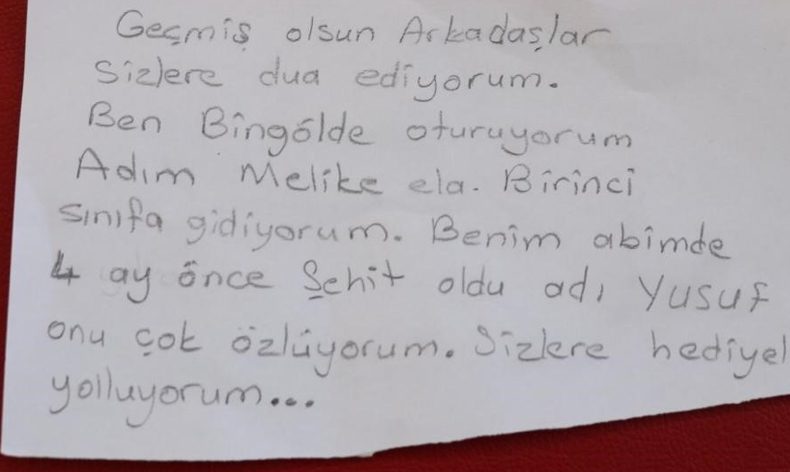 Geçmiş olsun Arkadaşlar
Sizlere dua ediyorum.
Ben Bingölde oturuyorum
Adım Melike ela. Birinci
sınıfa gidiyorum. Benim abimde
4 ay önce Şehit oldu adı Yusuf
onu çok özlüyorum. Sizlere hediyel
yolluyorum...